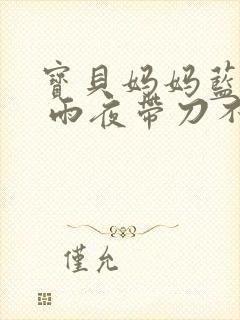 寶貝媽媽藍
雨夜帶刀不
僅允